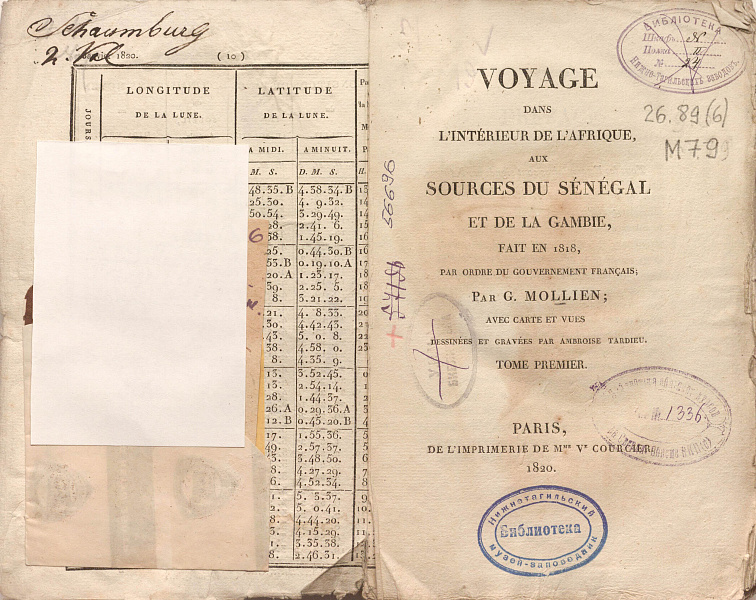 Schaumburg
1820. (10)
LONGITUDE
DE LA LUNE.
LATITUDE
DE LA LUNE.
JOURS
A MIDI. A MINUIT.
M. S. D. M. S.
48.35.B 4.38.34.B
25.30. 4. 9.32.
50.54. 3.29.49.
28. 2.41. 6.
38. 1.45.19.
25. 0.44.30.B
53.B 0.19.10.A
20.A 1.23.17.
39. 2.25. 5.
8. 3.21.22.
21. 4. 8.33.
30. 4.42.43.
43. 5. 0. 8.
38. 4.58. 0.
8. 4.35. 9.
13. 3.52.45.
13. 2.54.14.
28. 1.44.37.
26.A 0.29.36.A
12.B 0.45.20.B
17. 1.55.36.
49. 2.57.37.
3. 3.48.50.
8. 4.27.29.
6. 4.52.34.
1. 5. 3.37.
2. 5. 0.41.
8. 4.44.20.
3. 4.15.29.
1. 3.35.38.
8. 2.46.31.
56696
VOYAGE
DANS
L'INTÉRIEUR DE L'AFRIQUE,
AUX
SOURCES DU SÉNÉGAL
ET DE LA GAMBIE,
FAIT EN 1818,
PAR ORDRE DU GOUVERNEMENT FRANÇAIS;
PAR G. MOLLIEN;
AVEC CARTE ET VUES
DESSINÉES ET GRAVÉES PAR AMBROISE TARDIEU.
TOME PREMIER.
PARIS,
DE L'IMPRIMERIE DE Mme Ve COURCIER.
1820.
БИБЛІОТЕКА
Шкафъ
Полка II
№ 24
Нижне-Тагильскихъ заводовъ
26.89(6)
М 79
1336
Нижнетагильский
Библиотека
музей-заповедник